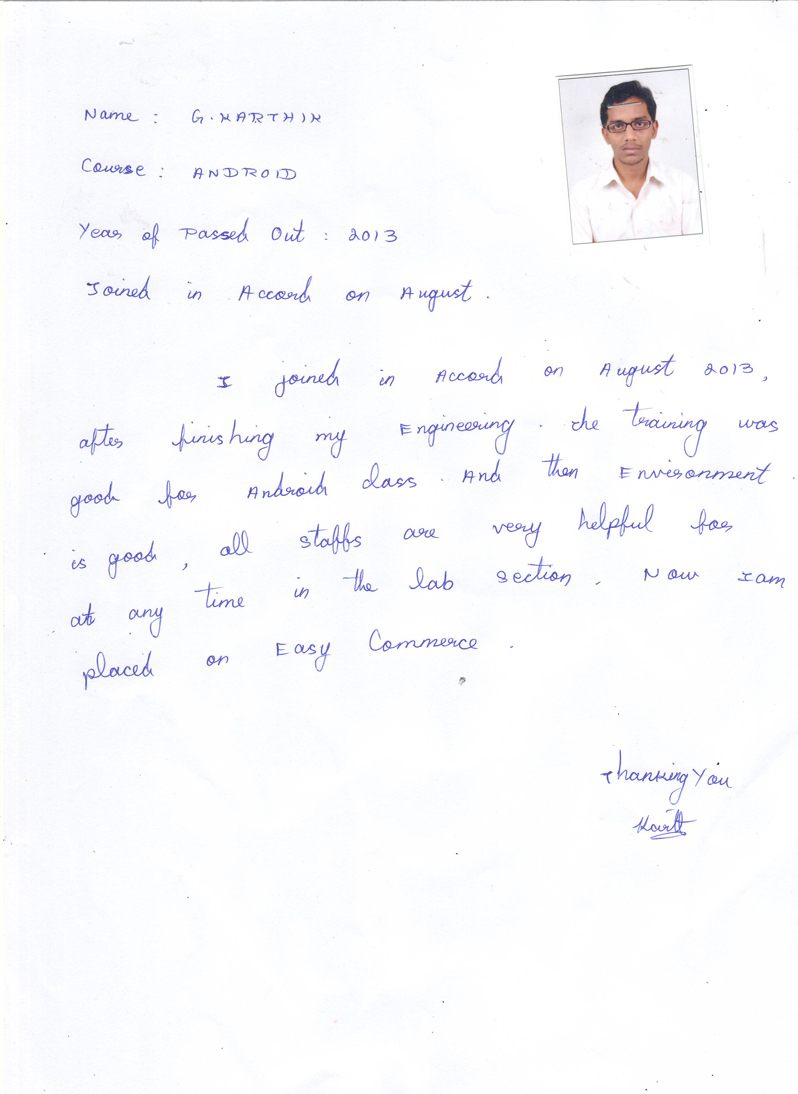 Name : G. KARTHIK
Course : ANDROID
Year of Passed Out : 2013
Joined in Accord on August .
I joined in Accord on August 2013,
after finishing my Engineering . the training was
good for Android class . And then Environment
is good , all staffs are very helpful for
at any time in the lab section . Now I am
placed on Easy Commerce .
Thanking You